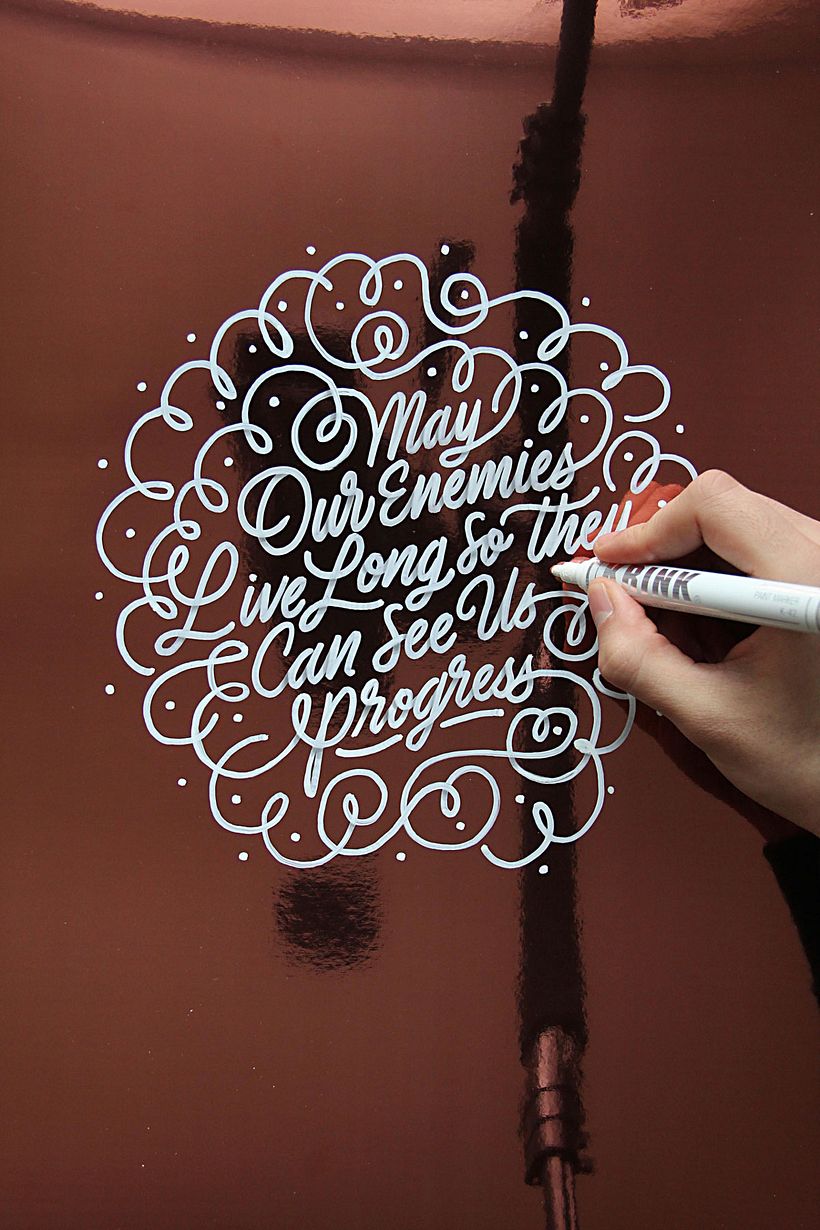 May
Our Enemies
Live Long So they
Can See Us
Progress
KRINK
PAINT MARKER
K-42